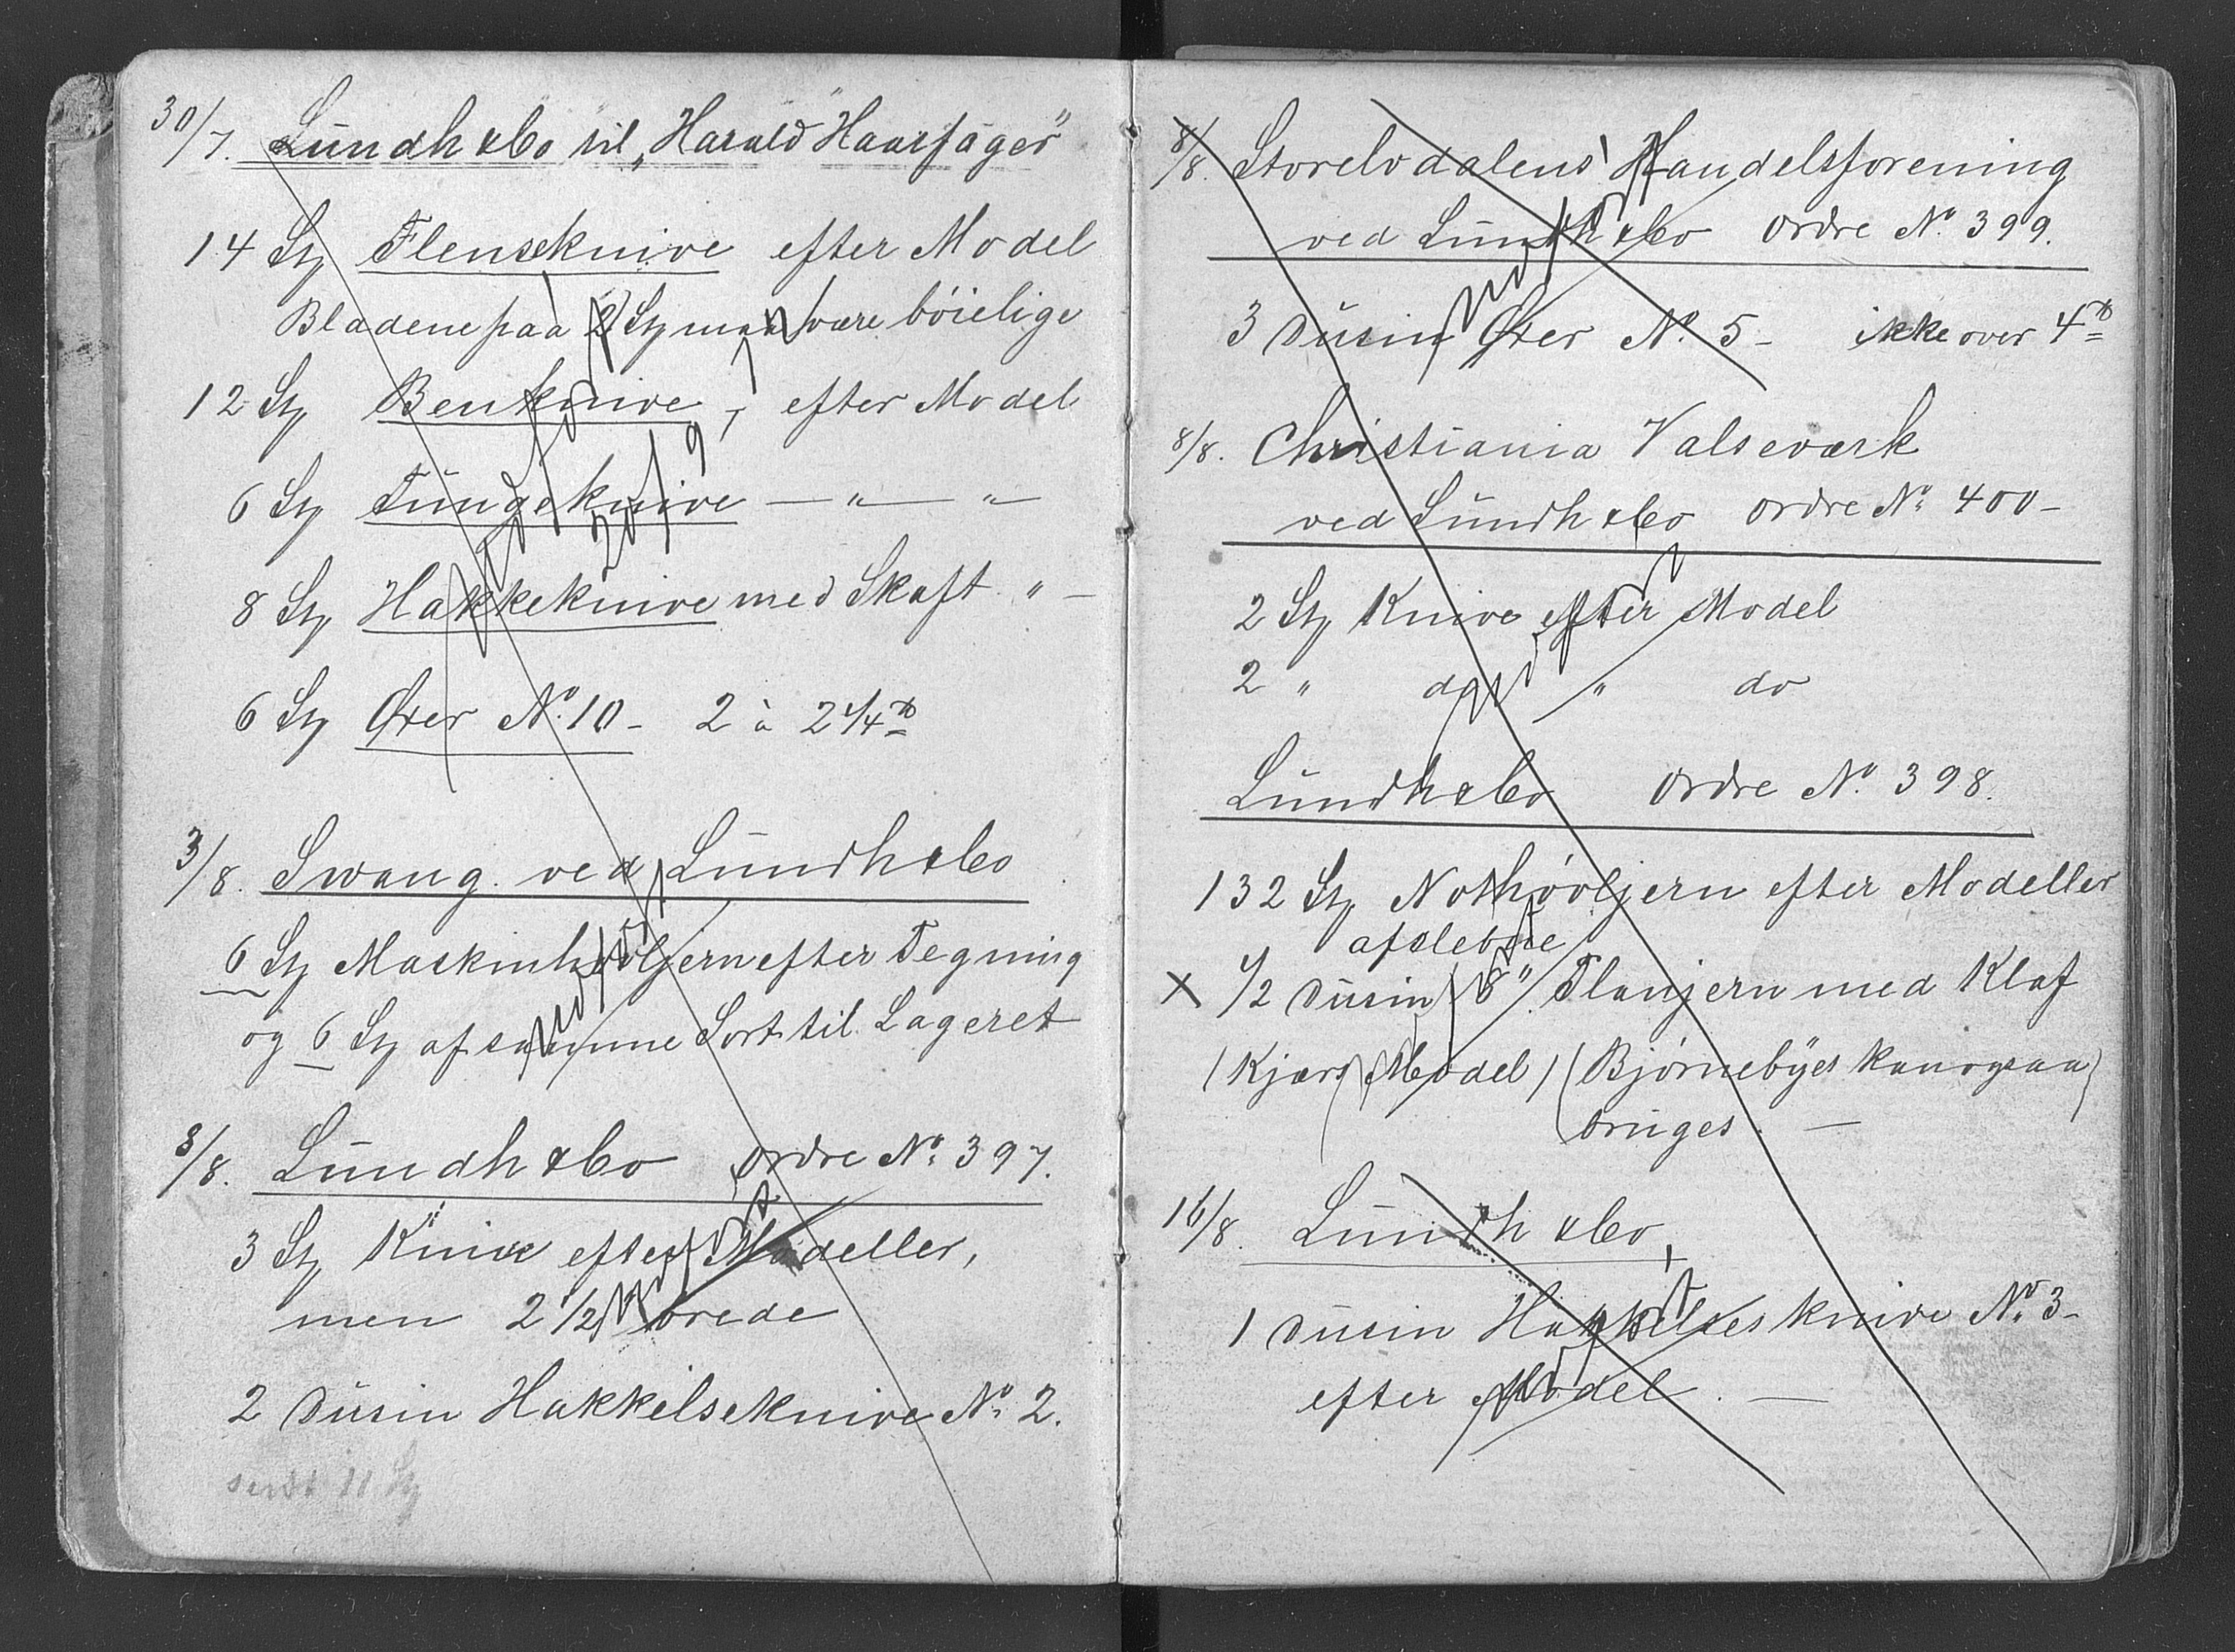 30/7. Lundh & Co til „Harald Haarfager"
14 St Flenseknive efter Model
Bladene paa 2 St maa være bøielige
12 St Benknive, efter Model
6 St Tungeknive — " — "
8 St Hakkeknive med Skaft " —
6 St Øxer No. 10 - 2 à 2 1/4 ℔
3/8. Swang. ved Lundh & Co
6 St Maskinhøvljern efter Tegning
og 6 St af samme Sort til Lageret
8/8. Lundh & Co Ordre No. 397.
3 St Knive efter Modeller,
men 2 1/2" brede
2 Dusin Hakkelseknive No. 2.
sendt 11 St
8/8. Storelvdalens Handelsforening
ved Lundh & Co Ordre No. 399.
3 Dusin Øxer No. 5 - ikke over 4 ℔
8/8. Christiania Valseværk
ved Lundh & Co Ordre No. 400 -
2 St Knive efter Model
2 " do " do
Lundh & Co Ordre No. 398.
132 St Nothøvljern efter Modeller
afslebne
x 1/2 Dusin 8" Planjern med Klaf
(Kjærs Model) (Bjørnebyes kan ogsaa)
bruges. —
16/8. Lundh & Co,
1 Dusin Hakkelsesknive No. 3 -
efter Model. —